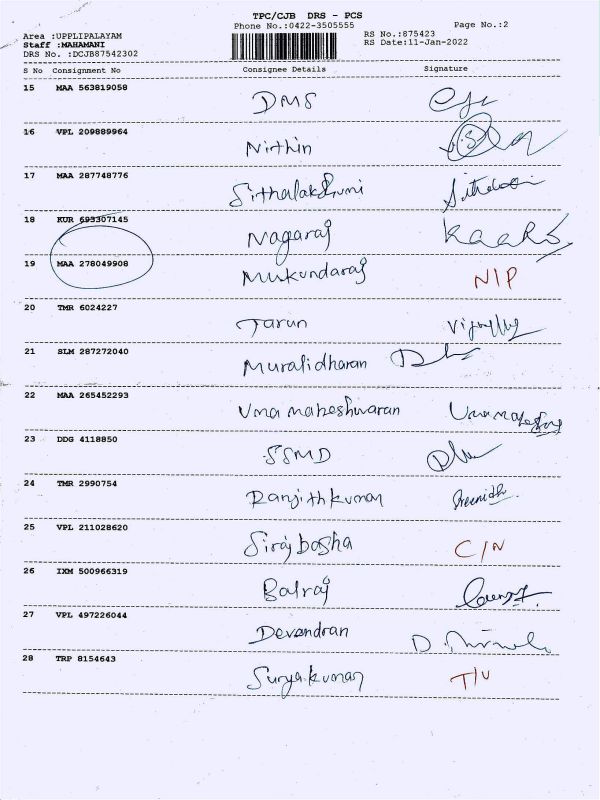 TPC/CJB DRS - PCS
Phone No.:0422-3505555 Page No.:2
Area :UPPLIPALAYAM RS No.:875423
Staff :MAHAMANI RS Date:11-Jan-2022
DRS No. :DCJB87542302
S No Consignment No Consignee Details Signature
15 MAA 563819058 DMS
16 VPL 209889964 Nirthin
17 MAA 287748776 Sithalakshmi
18 KUR 693307145 Nagaraj
19 MAA 278049908 Mukundaraj N/P
20 TMR 6024227 Tarun
21 SLM 287272040 Muralidharan
22 MAA 265452293 Uma maheshwaran
23 DDG 4118850 SSMD
24 TMR 2990754 Ranjithkumar Sreenidhi
25 VPL 211028620 Siraj basha C/N
26 IXM 500966319 Balraj
27 VPL 497226044 Devendran
28 TRP 8154643 Suryakumar T/U